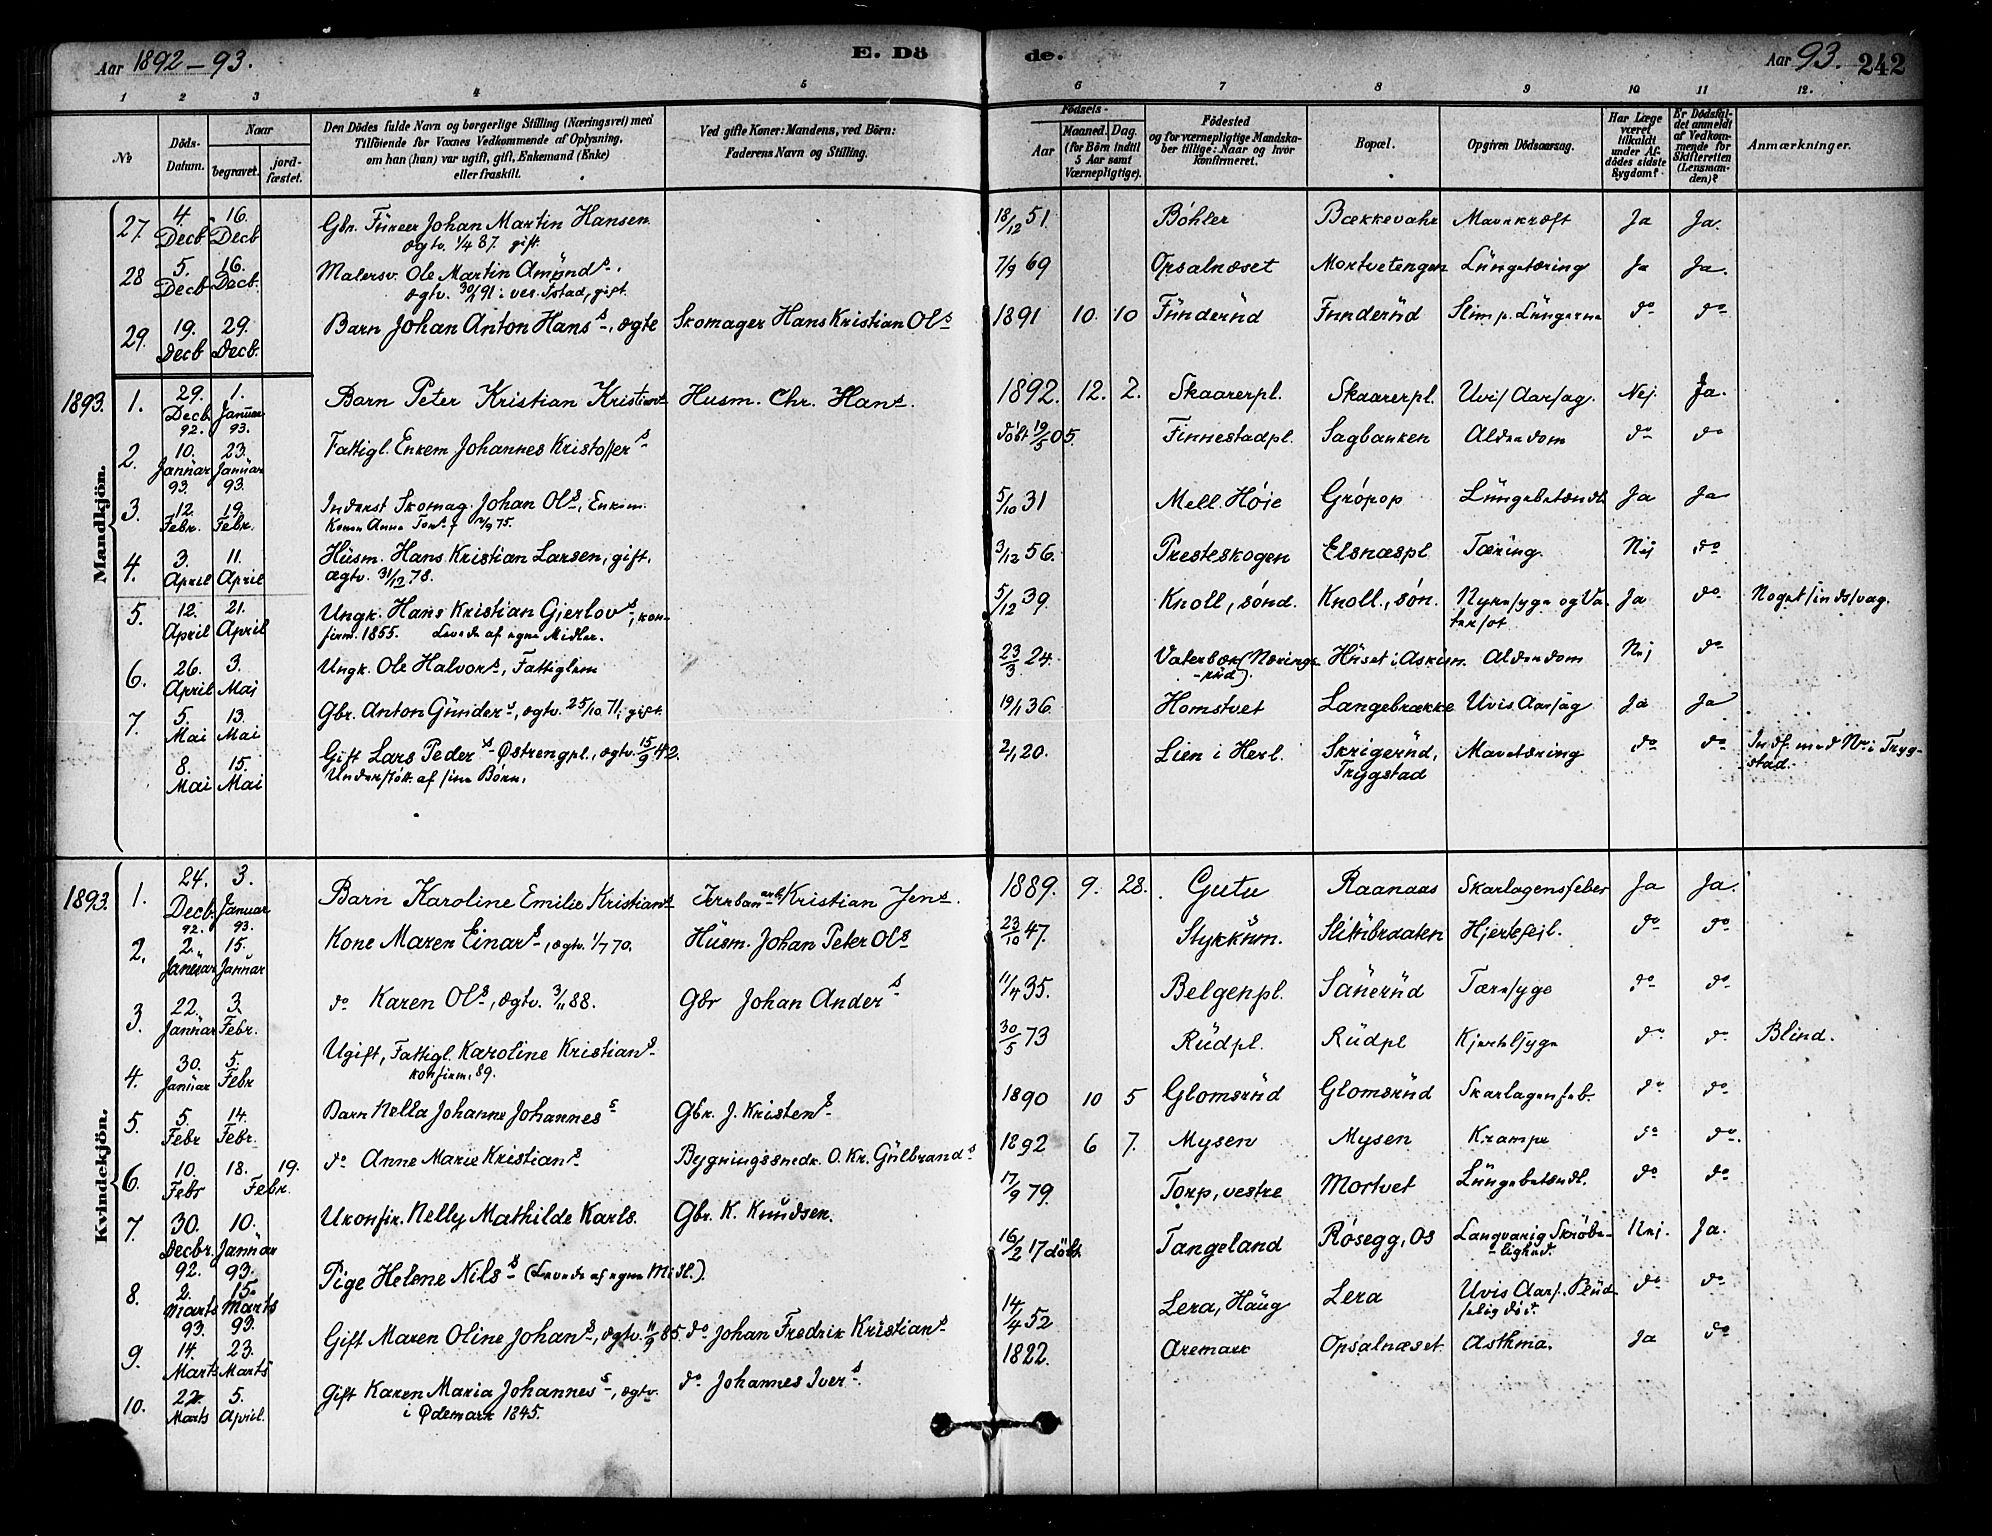 Aar 1892-93.
E. Dö
de.
Aar 93. 242
1 2 3 4 5 6 7 8 9 10 11 12.
No
Döds-Datum.
Naar
begravet.
jord-fæstet.
Den Dödes fulde Navn og borgerlige Stilling (Næringsvei) med
Tilföiende for Voxnes Vedkommende af Oplysning,
om han (hun) var ugift, gift, Enkemand (Enke)
eller fraskilt.
Ved gifte Koner: Mandens, ved Börn:
Faderens Navn og Stilling.
Födsels-
Aar
Maaned. Dag.
(for Börn indtil
5 Aar samt
Værnepligtige).
Födested
og for værnepligtige Mandska-
ber tillige: Naar og hvor
konfirmeret.
Bopæl.
Opgiven Dödsaarsag.
Har Læge
været
tilkaldt
under Af-
dödes sidste
Sygdom?
Er Dödsfal-
det anmeldt
af Vedkom-
mende for
Skifteretten
(Lensman-
den)?
Anmærkninger.
Mandkjön.
27. 4 Decb 16. Decb Gbr. Johan Martin Hansen 18/12 51. Böhler Bækkevahr Mavekræft Ja Ja.
ægtv. 1/4 87. gift.
28 5. Decb 16. Decb. Malersv. Ole Martin Amünds. 7/9 69 Opsalnæset Mortvetengen Lüngetæring Ja Ja.
ægtv. 30/ 91 i ves. , gift.
29. 19. Decb 29. Decb. Barn Johan Anton Hans s, ægte Skomager Hans Kristian Ols 1891 10. 10 Fünderüd Fünderüd Slim p. Lüngerne do do
1893. 1. 29. Decb. 92. 1. Januar 93. Barn Peter Kristian Kristians Husm. Chr. Hans. 1892. 12. 2. Skaarerpl. Skaarerpl. Uvis Aarsag. Nej. Ja.
2. 10. Januar 93. 23. Januar 93. Fattigl. Enkem Johannes Kristoffers döbt 19/5 05. Finnestadpl. Sagbakken Alderdom do do
3. 12. Febr. 19. Febr. Inderst Skomag. Johan Ols, Enkem. 5/10 31 Mell. Höie Gröpop Lüngebetændt Ja Ja
Konen Anne † /9 75.
4. 3. April 11. April Hüsm. Hans Kristian Larsen, gift. 3/12 56. Presteskogen Elsnæspl Tæring. Nej do
ægtv. 31/12 78.
5. 12. April 21. April Ungk. Hans Kristian Gjerlovs, kon- 5/12 39. Knoll, sönd. Knoll., sön. Nyresyge og Va- Ja do Noget sindssvag.
firm. 1855. Levede af egne Midler. tersot
6. 26. April 3. Mai Ungk. Ole Halvors, Fattiglem 23/3 24. Vaterbæk (Nærings- Hüset i Askim. Alderdom Nej do
-rüd).
7. 5. Mai 13. Mai Gbr. Anton Günders, ægtv. 25/10 71, gift. 19/1 36. Homstvet Langebrække Uvis Aarsag Ja Ja
8. Mai 15. Mai Gift Lars Peders Østrengpl., ægtv. 15/9 42. 2/1 20. Lien i Herl. Skrigerüd, Mavetæring do do Indf. med Nr. i Tryg-
Understött. af sine Börn. Trygstad -stad.
Kvindekjön.
1893. 1. 24. Decb. 92. 3. Januar 93. Barn Karoline Emilie Kristians Jernbanearb. Kristian Jens. 1889. 9. 28. Gutu Raanaas Skarlagensfeber Ja Ja.
2. 2. Januar 15. Januar Kone Maren Einars, ægtv. 1/7 70. Hüsm. Johan Peter Ols 23/10 47. Stykküm. Slitübraaten Hjertefejl. do do
3. 22. Januar 3. Febr. do Karen Ols, ægtv. 3/11 88. Gbr Johan Anders 11/4 35. Belgenpl. Sänerüd Tæresyge do do
4. 30. Januar 5. Febr Ugift, Fattigl. Karoline Kristians 30/5 73 Rüdpl. Rüdpl Kjertelsyge do do Blind.
konfirm. 89.
5. 5. Febr 14. Febr. Barn Nella Johanne Johanness Gbr. J. Kristens 1890 10 5 Glomsrüd Glomsrüd Skarlagensfeb. do do
6. 10. Febr 18. 19. Febr. do Anne Marie Kristians Bygningssnedk. O. Kr. Gülbrands 1892 6 7. Mysen Mysen Krampe do do.
7 30. Decbr. 92. 10. Januar 93. Ukonfir. Nelly Mathilde Karls. Gbr. K. Knudsen. 17/9 79. Torp, vestre Mortvet Lüngebetændt. do do
8. 2. Marts 93. 15. Marts 93. Pige Helene Nils s (Levede af egne Midl.). 16/2 17 döbt. Tangeland Røsegg, Os Langvarig Skröbe- Nej. Ja.
-lighed.
9. 14. Marts 23. Marts Gift Maren Oline Johans, ægtv. 11/9 85 do Johan Fredrik Kristians 14/4 52 Lera, Haug Lera Uvis Aars. Plüd- do do
selig död.
10. 22. Marts 5. April. Gift Karen Maria Johanness, ægtv. do Johannes Ivers 1822. Aremark Opsalnæset Asthma. Ja do
i Ødemark 1845.